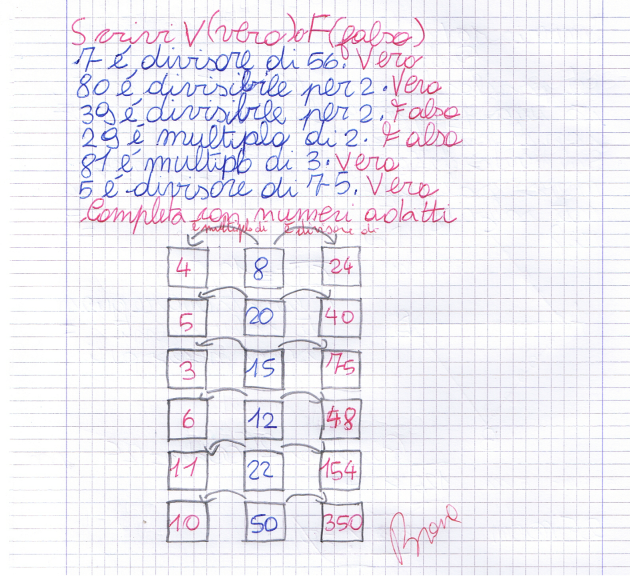 Scrivi V(vero) o F(falso)
7 é divisore di 56. Vero
80 é divisibile per 2. Vero
39 é divisibile per 2. Falso
29 é multiplo di 2. Falso
81 é multiplo di 3. Vero
5 é divisore di 75. Vero
Completa con numeri adatti
é multiplo di é divisore di
4 8 24
5 20 40
3 15 75
6 12 48
11 22 154
10 50 350
Brava